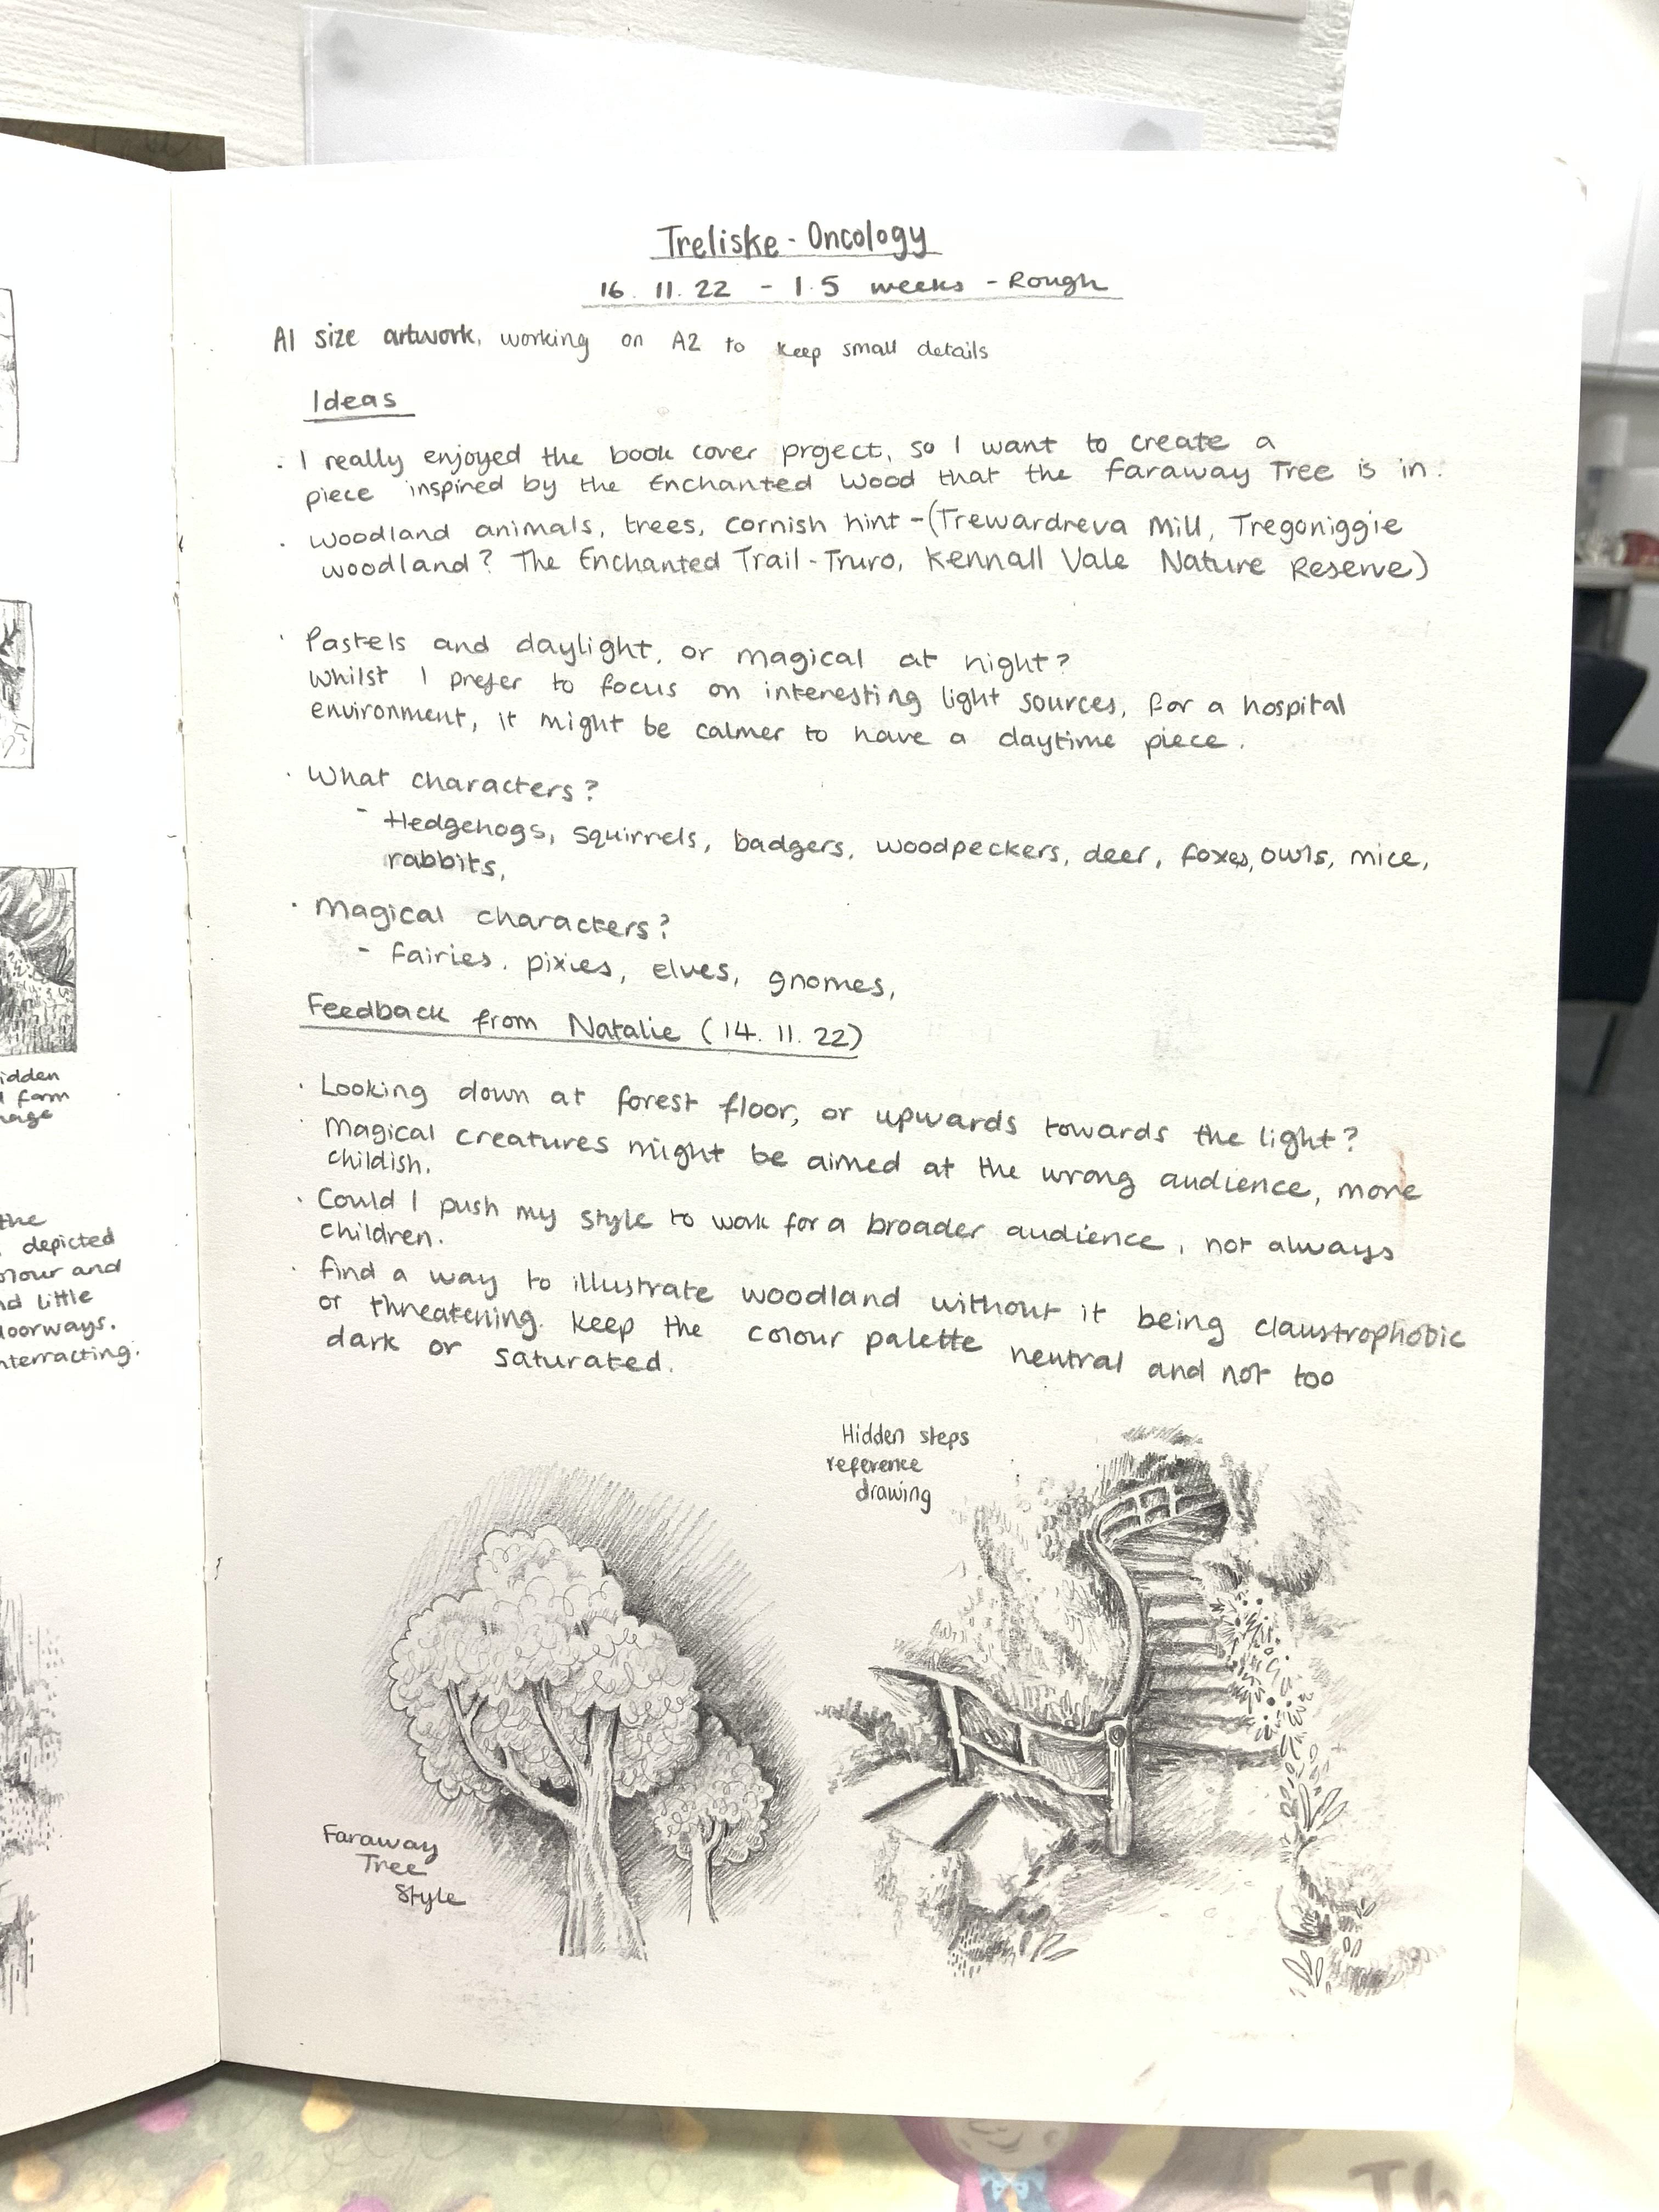 Treliske - Oncology
16. 11. 22 - 1.5 weeks - Rough
A1 size artwork, working on A2 to keep small details
Ideas
· I really enjoyed the book cover project, so I want to create a
piece inspired by the Enchanted Wood that the Faraway Tree is in.
· Woodland animals, trees, cornish hint - (Trewardreva Mill, Tregoniggie
woodland? The Enchanted Trail - Truro, Kennall Vale Nature Reserve)
· Pastels and daylight, or magical at night?
Whilst I prefer to focus on interesting light sources, for a hospital
environment, it might be calmer to have a daytime piece.
· What characters?
- Hedgehogs, squirrels, badgers, woodpeckers, deer, foxes, owls, mice,
rabbits,
· Magical characters?
- Fairies, pixies, elves, gnomes,
Feedback from Natalie (14. 11. 22)
· Looking down at forest floor, or upwards towards the light?
· Magical creatures might be aimed at the wrong audience, more
childish.
· Could I push my style to work for a broader audience, not always
children.
· Find a way to illustrate woodland without it being claustrophobic
or threatening. Keep the colour palette neutral and not too
dark or saturated.
Hidden steps
reference
drawing
Faraway
Tree
Style
idden
farm
the
depicted
and
little
doorways.
interracting.